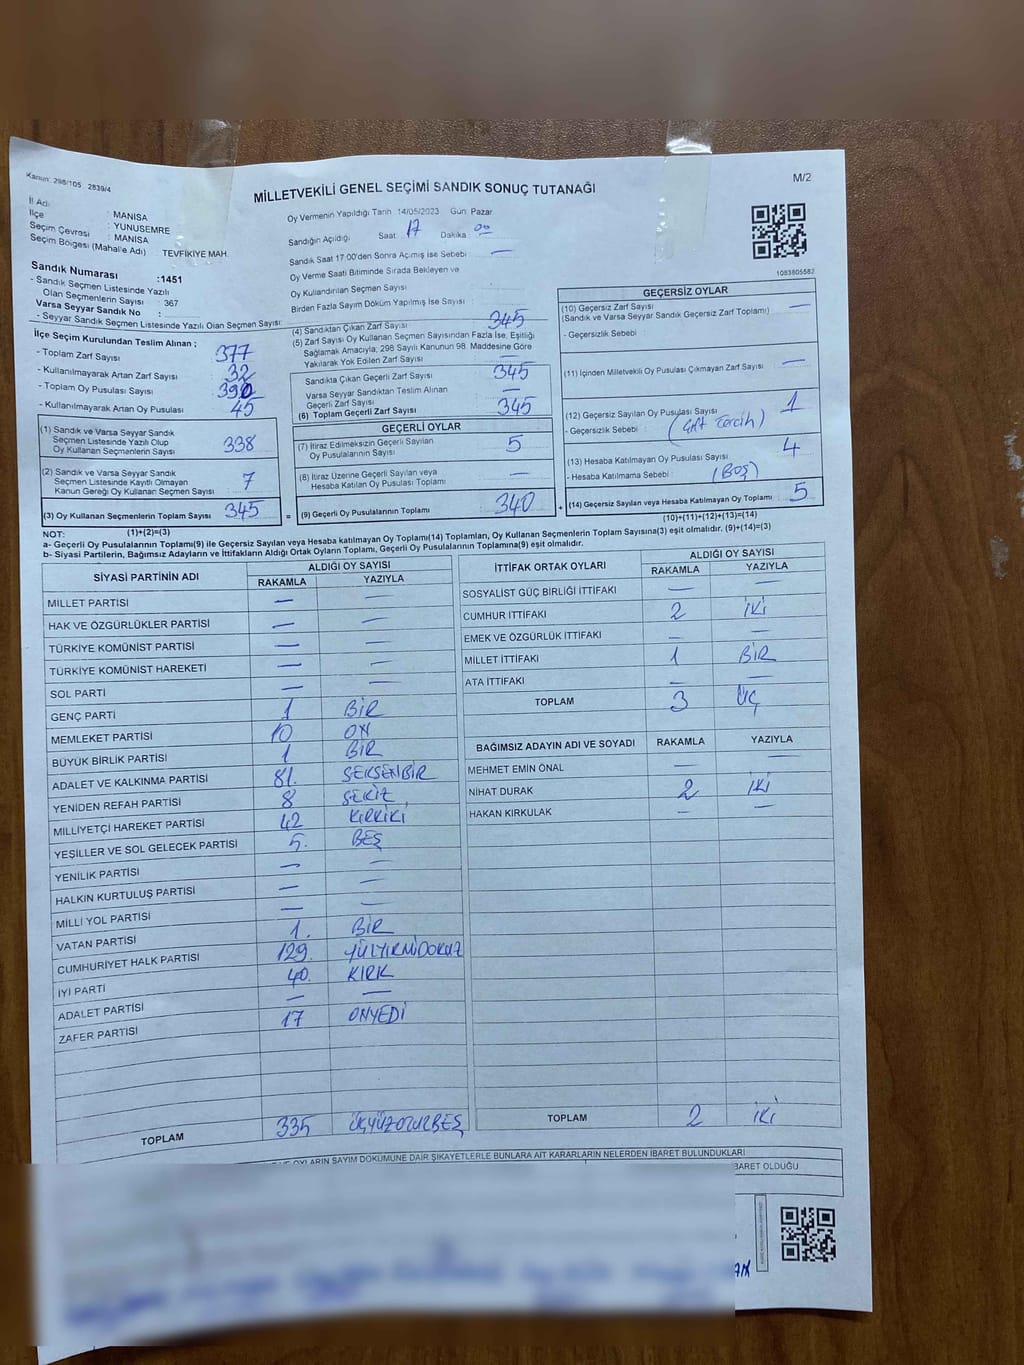 Kanun: 298/105 2839/4
M/2
MİLLETVEKİLİ GENEL SEÇİMİ SANDIK SONUÇ TUTANAĞI
İl Adı : MANİSA
İlçe : YUNUSEMRE
Seçim Çevresi : MANİSA
Seçim Bölgesi (Mahalle Adı) TEVFİKİYE MAH.
Sandık Numarası :1451
- Sandık Seçmen Listesinde Yazılı
Olan Seçmenlerin Sayısı : 367
Varsa Seyyar Sandık No :
- Seyyar Sandık Seçmen Listesinde Yazılı Olan Seçmen Sayısı:
Oy Vermenin Yapıldığı Tarih 14/05/2023 Gün: Pazar
Sandığın Açıldığı Saat : 17 Dakika : 00
Sandık Saat 17:00'den Sonra Açımış İse Sebebi : —
Oy Verme Saati Bitiminde Sırada Bekleyen ve
Oy Kullandırılan Seçmen Sayısı :
Birden Fazla Sayım Döküm Yapılmış İse Sayısı :
1083805582
İlçe Seçim Kurulundan Teslim Alınan ;
- Toplam Zarf Sayısı : 377
- Kullanılmayarak Artan Zarf Sayısı : 32
- Toplam Oy Pusulası Sayısı : 390
- Kullanılmayarak Artan Oy Pusulası : 45
(1) Sandık ve Varsa Seyyar Sandık
Seçmen Listesinde Yazılı Olup
Oy Kullanan Seçmenlerin Sayısı : 338
(2) Sandık ve Varsa Seyyar Sandık
Seçmen Listesinde Kayıtlı Olmayan
Kanun Gereği Oy Kullanan Seçmen Sayısı : 7
(3) Oy Kullanan Seçmenlerin Toplam Sayısı : 345
(1)+(2)=(3)
(4) Sandıktan Çıkan Zarf Sayısı : 345
(5) Zarf Sayısı Oy Kullanan Seçmen Sayısından Fazla İse, Eşitliği
Sağlamak Amacıyla; 298 Sayılı Kanunun 98. Maddesine Göre
Yakılarak Yok Edilen Zarf Sayısı : —
Sandıkta Çıkan Geçerli Zarf Sayısı : 345
Varsa Seyyar Sandıktan Teslim Alınan
Geçerli Zarf Sayısı : —
(6) Toplam Geçerli Zarf Sayısı : 345
GEÇERLİ OYLAR
(7) İtiraz Edilmeksizin Geçerli Sayılan
Oy Pusulalarının Sayısı : 5
(8) İtiraz Üzerine Geçerli Sayılan veya
Hesaba Katılan Oy Pusulası Toplamı : —
= (9) Geçerli Oy Pusulalarının Toplamı : 340
GEÇERSİZ OYLAR
(10) Geçersiz Zarf Sayısı : —
(Sandık ve Varsa Seyyar Sandık Geçersiz Zarf Toplamı)
- Geçersizlik Sebebi :
(11) İçinden Milletvekili Oy Pusulası Çıkmayan Zarf Sayısı : —
(12) Geçersiz Sayılan Oy Pusulası Sayısı : 1
- Geçersizlik Sebebi : (Çift Tercih)
(13) Hesaba Katılmayan Oy Pusulası Sayısı : 4
- Hesaba Katılmama Sebebi : (BOŞ)
+ (14) Geçersiz Sayılan veya Hesaba Katılmayan Oy Toplamı : 5
(10)+(11)+(12)+(13)=(14)
NOT:
a- Geçerli Oy Pusulalarının Toplamı(9) ile Geçersiz Sayılan veya Hesaba katılmayan Oy Toplamı(14) Toplamları, Oy Kullanan Seçmenlerin Toplam Sayısına(3) eşit olmalıdır. (9)+(14)=(3)
b- Siyasi Partilerin, Bağımsız Adayların ve İttifakların Aldığı Ortak Oyların Toplamı, Geçerli Oy Pusulalarının Toplamına(9) eşit olmalıdır.
SİYASİ PARTİNİN ADI ALDIĞI OY SAYISI
RAKAMLA YAZIYLA
MİLLET PARTİSİ — —
HAK VE ÖZGÜRLÜKLER PARTİSİ — —
TÜRKİYE KOMÜNİST PARTISI — —
TÜRKİYE KOMÜNİST HAREKETİ — —
SOL PARTİ — —
GENÇ PARTİ 1 BİR
MEMLEKET PARTİSİ 10 ON
BÜYÜK BİRLİK PARTİSİ 1 BİR
ADALET VE KALKINMA PARTİSİ 81. SEKSENBİR
YENİDEN REFAH PARTİSİ 8 SEKİZ
MİLLİYETÇİ HAREKET PARTİSİ 42 KIRKİKİ
YEŞİLLER VE SOL GELECEK PARTİSİ 5. BEŞ
YENİLİK PARTİSİ — —
HALKIN KURTULUŞ PARTİSİ — —
MİLLİ YOL PARTİSİ — —
VATAN PARTİSİ 1. BİR
CUMHURİYET HALK PARTİSİ 129. YÜZYİRMİDOKUZ
İYİ PARTİ 40. KIRK
ADALET PARTİSİ — —
ZAFER PARTİSİ 17 ONYEDİ
TOPLAM 335 ÜÇYÜZOTUZBEŞ
İTTİFAK ORTAK OYLARI ALDIĞI OY SAYISI
RAKAMLA YAZIYLA
SOSYALİST GÜÇ BİRLİĞİ İTTİFAKI — —
CUMHUR İTTİFAKI 2 İKİ
EMEK VE ÖZGÜRLÜK İTTİFAKI — —
MİLLET İTTİFAKI 1 BİR
ATA İTTİFAKI — —
TOPLAM 3 ÜÇ
BAĞIMSIZ ADAYIN ADI VE SOYADI RAKAMLA YAZIYLA
MEHMET EMIN ÖNAL — —
NİHAT DURAK 2 İKİ
HAKAN KIRKULAK — —
TOPLAM 2 İKİ
VE OYLARIN SAYIM DÖKÜMÜNE DAİR ŞİKAYETLERLE BUNLARA AİT KARARLARIN NELERDEN İBARET BULUNDUKLARI
BARET OLDUĞU